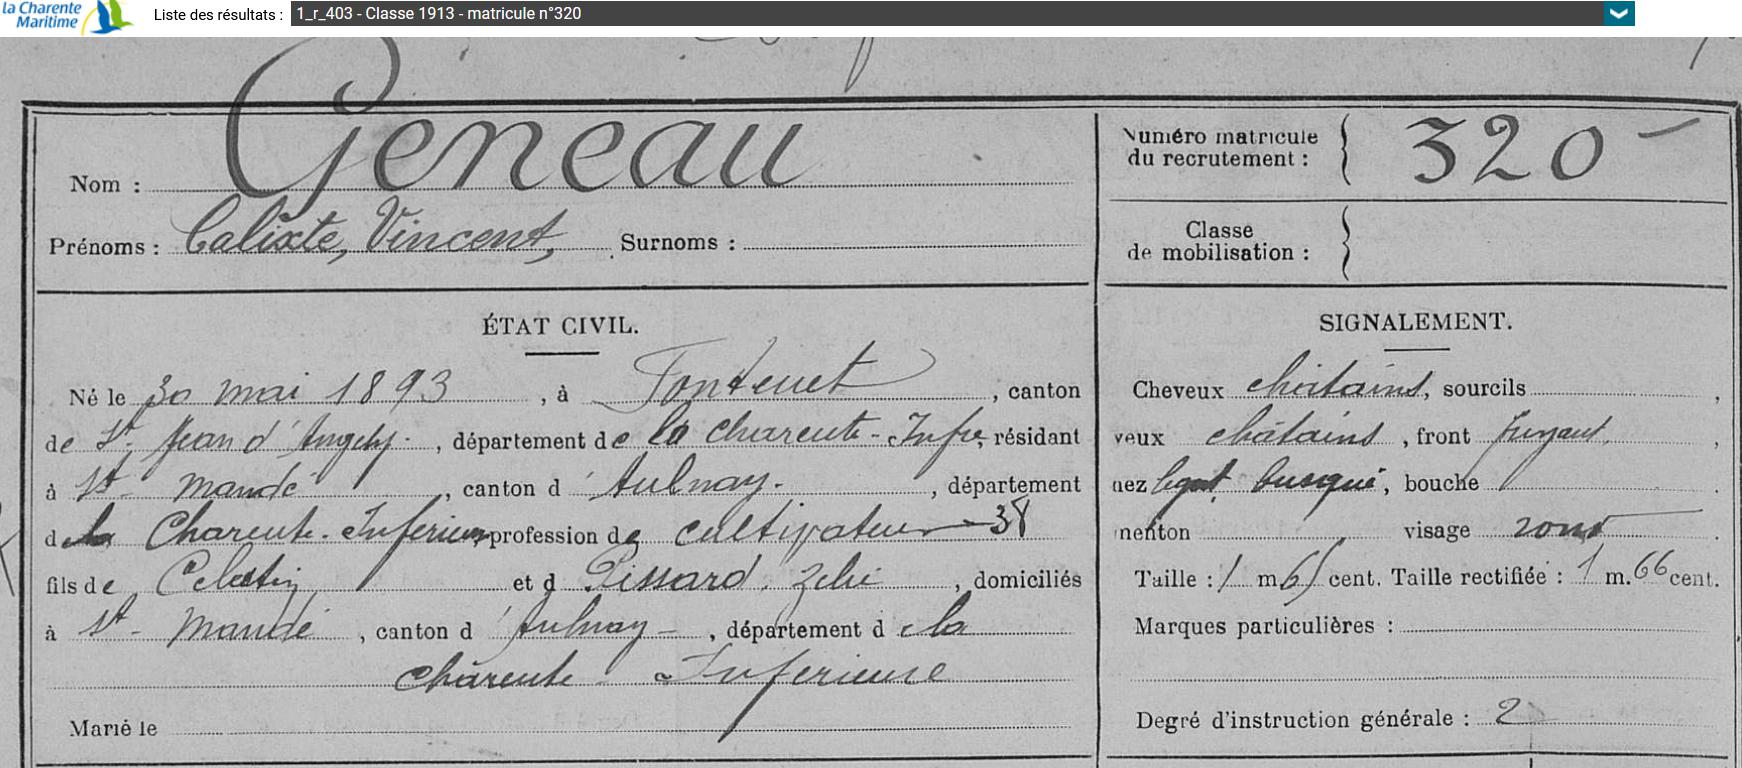 la Charente
Maritime
Liste des résultats : 1_r_403 - Classe 1913 - matricule n°320
Nom : Geneau
Prénoms : Calixte, Vincent, Surnoms :
Numéro matricule
du recrutement : 320
Classe
de mobilisation :
ÉTAT CIVIL.
Né le 30 mai 1893, à Fontenet, canton
de St. Jean d'Angely, département de la Charente-Infre, résidant
à St-Mandé, canton d'Aulnay, département
de la Charente-Inférieure profession de cultivateur 38
fils de Celestin et d Pissard, Zélie, domiciliés
à St-Mandé, canton d'Aulnay, département d la
Charente-Inferieure
Marié le
SIGNALEMENT.
Cheveux châtains, sourcils ,
yeux châtains, front fuyant,
nez busqué, bouche .
menton visage rond .
Taille : 1 m 61 cent. Taille rectifiée : 1 m. 66 cent.
Marques particulières :
Degré d'instruction générale : 2